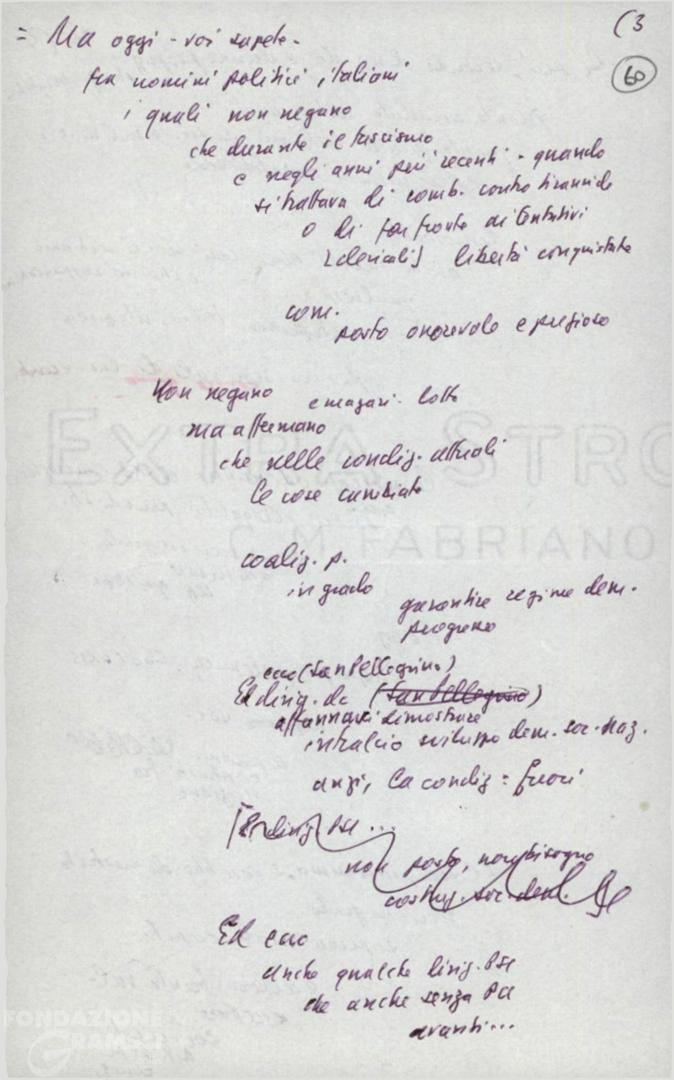 (3
60
= Ma oggi - voi sapete -
fra uomini politici italiani
i quali non negano
che durante il fascismo
e negli anni più recenti - quando
si trattava di comb. contro tirannide
o di far fronte ai tentativi
[clericali] libertà conquistate
com.
posto onorevole e prezioso
Non negano e magari lotte
ma affermano
che nelle condiz. attuali
le cose cambiate
coaliz. p.
in grado
garantire regime dem.
progresso
ecco (San Pellegrino)
Ed dirig. dc (San Pellegrino)
affannarsi dimostrare
intralcio sviluppo dem. soc. naz.
anzi, la condiz = fuori
[Ed dirig PSI ...
non posto, non bisogno
costruz. soc. dem.
Ed ecco
anche qualche dirig. PSI
che anche senza PCI
avanti...
EXTRA STRO
C.M.FABRIANO
FONDAZIONE
GRAMSCI